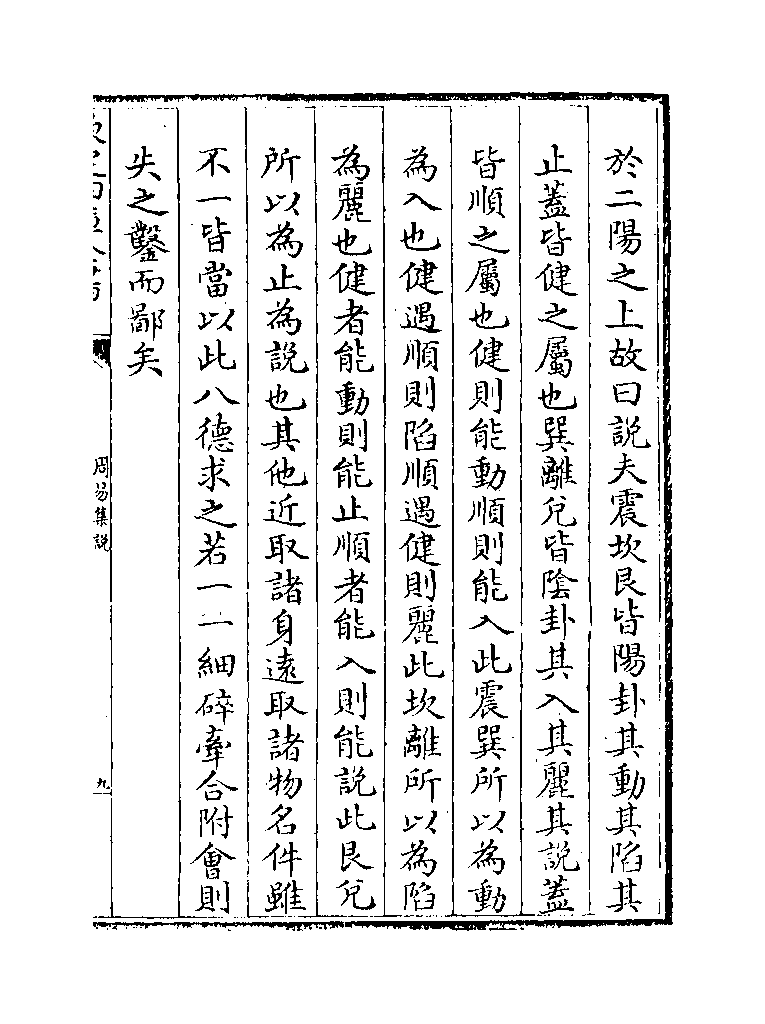 於二陽之上故曰說夫震坎艮皆陽卦其動其陷其
止蓋皆健之屬也巽離兌皆陰卦其入其麗其說蓋
皆順之屬也健則能動順則能入此震巽所以為動
為入也健遇順則陷順遇健則麗此坎離所以為陷
為麗也健者能動則能止順者能入則能說此艮兌
所以為止為說也其他近取諸身遠取諸物名件雖
不一皆當以此八德求之若一一細碎牽合附會則
失之鑿而鄙矣
周易集說
九